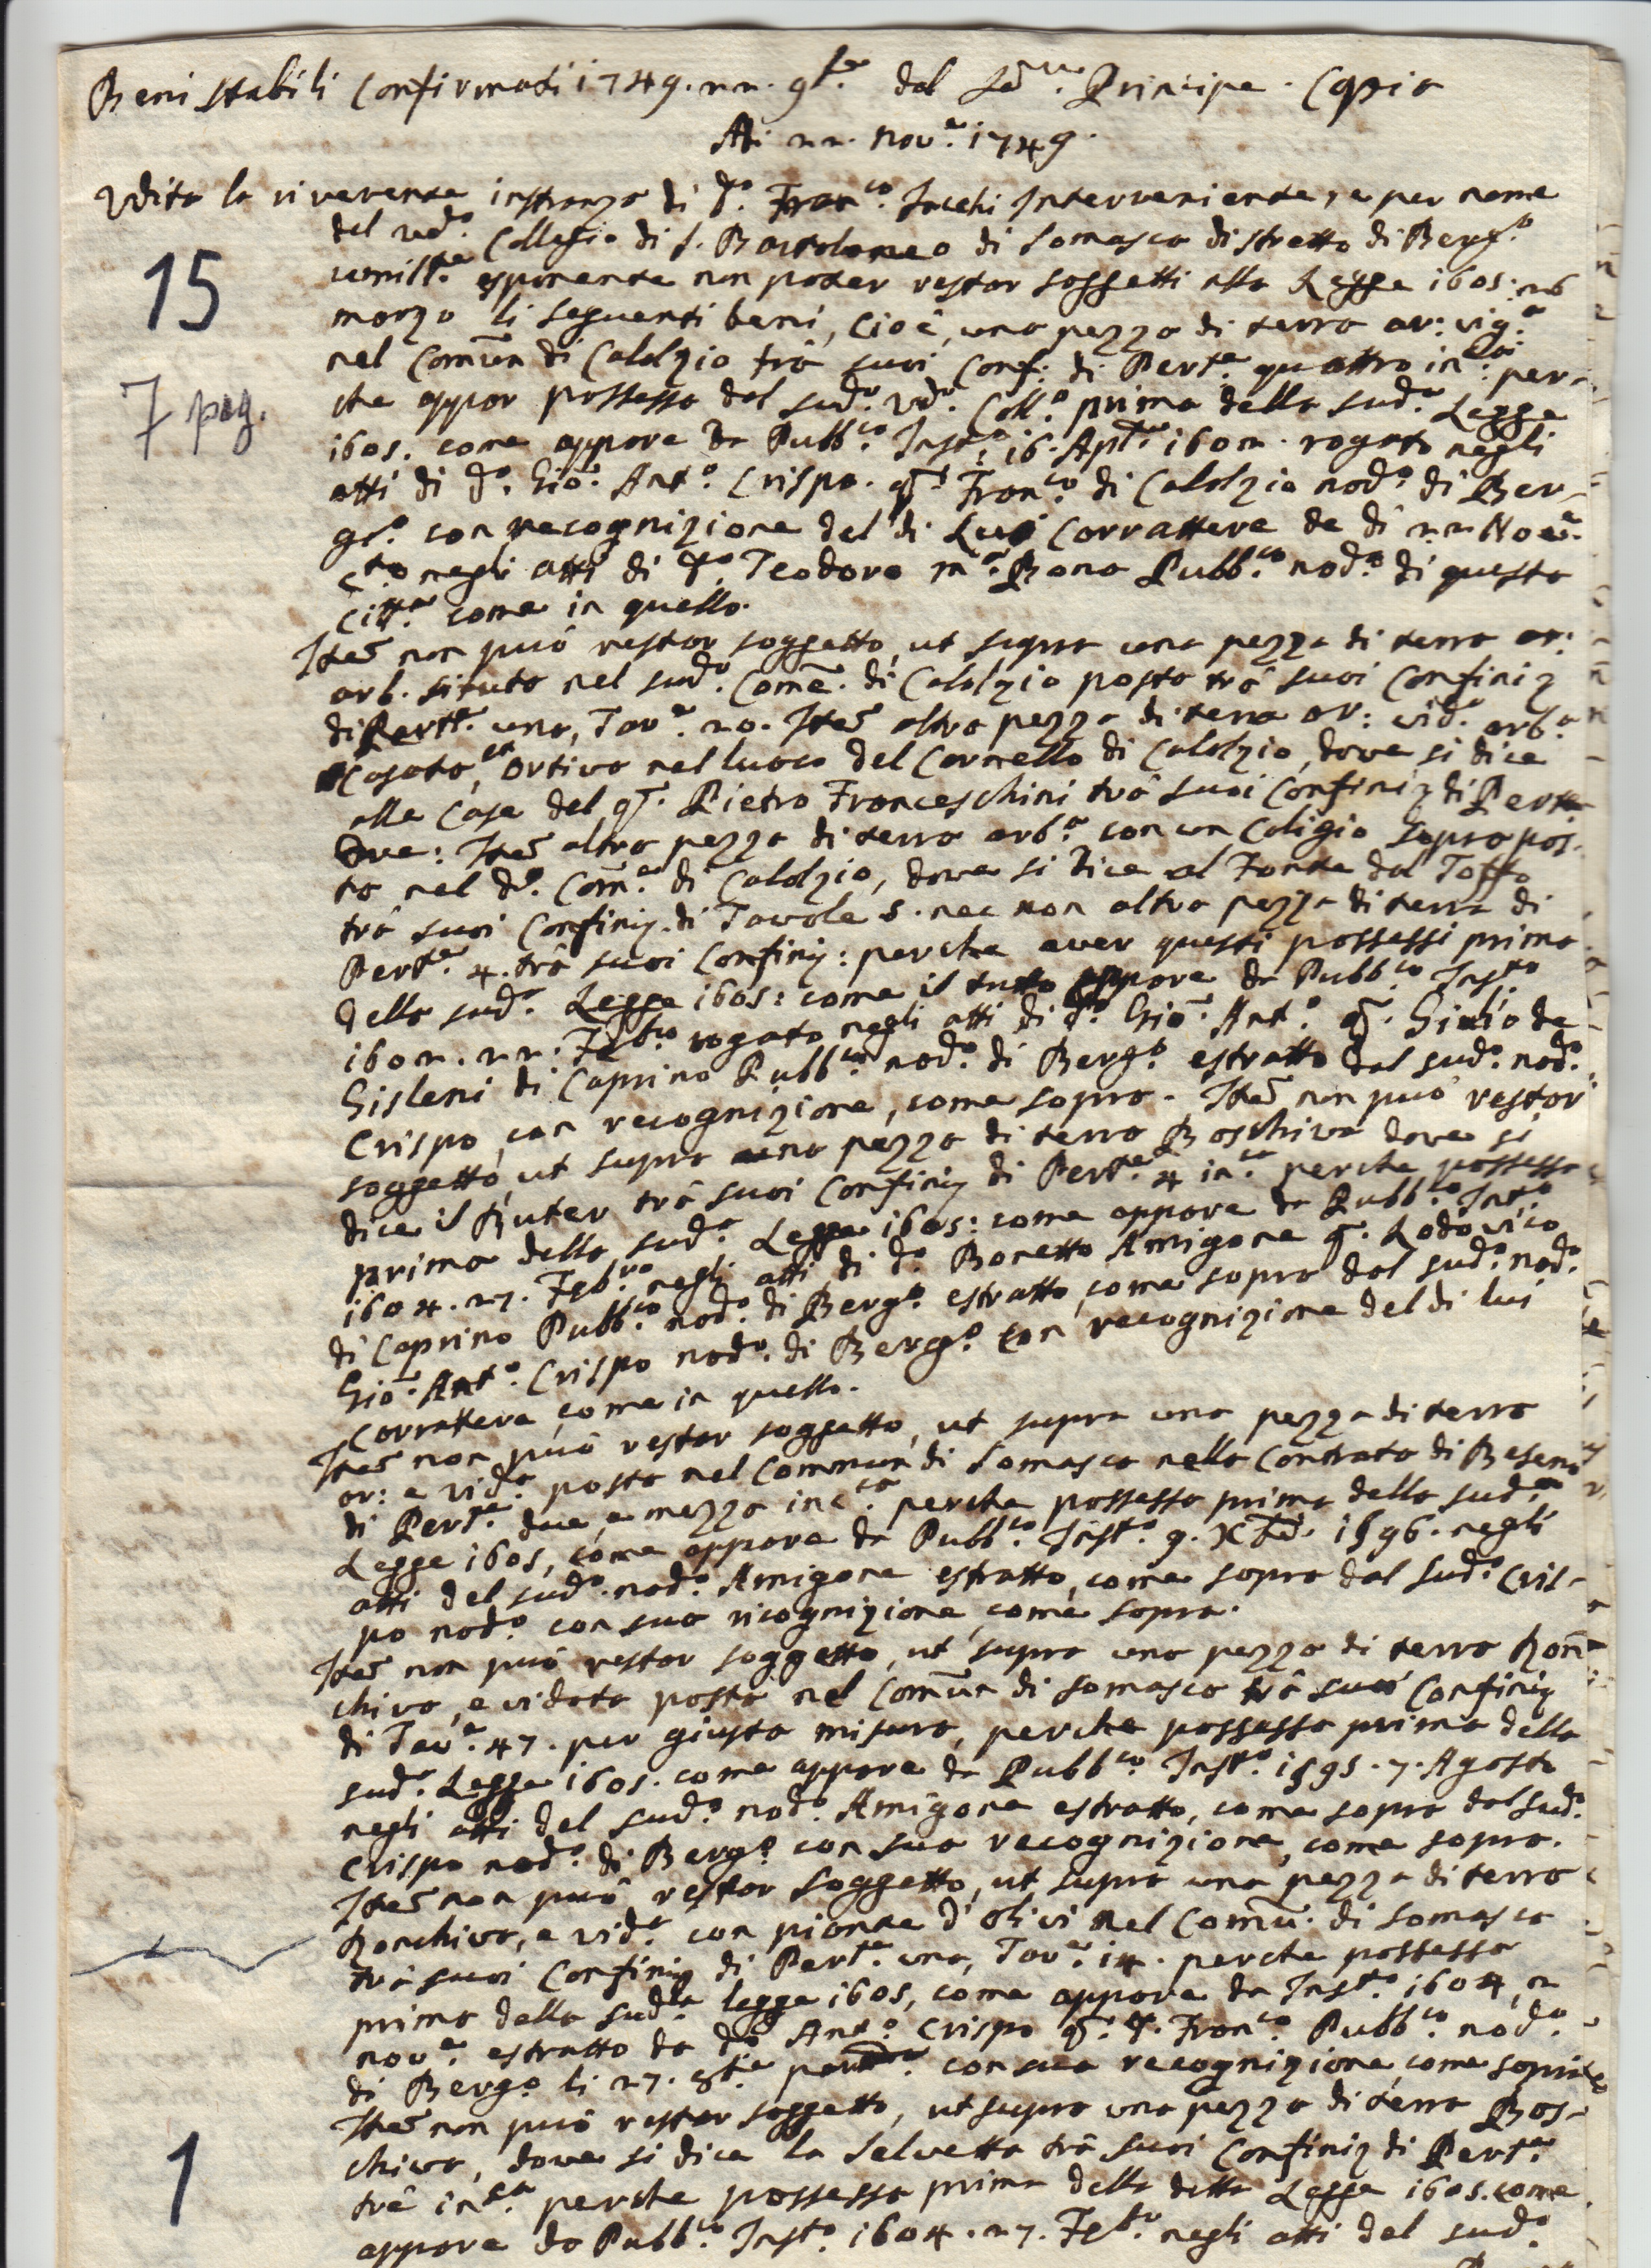 Beni stabili Confirmati 1749. 22. 9bre dal Ser.mo Principe. Copia
Adi 22. Nov.e 1749.
Udita la riverente instanza di D.o Fran.co Jacchi Interveniente, e per nome
del Ved.o Collegio di S. Bartolomeo di Somasca distretto di Berg.o
15
umilt.e esponente non poter restar soggetti alla Legge 1605. 26
marzo li seguenti beni, cioè, una pezza di terra ar: vig.a
nel Comun di Calolzio trà suoi Conf: di Pert.e quattro in.ca per-
7 pag.
che appar possessa dal sud.o Ved.o Coll.o prima della sud.a Legge
1605. come appare da Pubb.co Inst.o 16. Aple 1602. rogato negli
atti di D.o Gio: Ant.o Crispo q.m Fran.co di Calolzio nod.o di Ber-
g.o con recognizione del di Lui Carrattere de di 22 Nov.e
negli atti di D.o Teodoro M.a Bona Pubb.co nod.o di questa
Citt.a come in quello.
Item non può restar soggetto, ut supra una pezza di terra ar:
arb. situata nel sud.o Comẽ. di Calolzio posta trà suoi Confinij
di Pert.e una, Tav.e 20. Item altra pezza di terra ar: vid.a arb.a
Casata, et Ortiva nel luoco del Cornello di Calolzio, dove si dice
alla Casa del q.m Pietro Franceschini trà suoi Confinij di Perte
Due: Item altra pezza di terra arb.a con un Caligio sopra pos-
ta nel d.o Com.e di Calolzio, dove si dice al Fonte dal Toffo
trà suoi Confinij. di Tavole 5. nec non altra pezza di terra di
Pert.e 4. trà suoi Confinij: perche aver questi possessi prima
della sud.a Legge 1605: come il tutto appare da Pubb.co Inst.o
1602. 22. Feb.ro rogato negli atti di d.o Gio: Ant.o q.m Giulio de
Gisleni di Caprino Pubb.co nod.o di Berg.o estratto dal sud.o nod.o
Crispo, con recognizione, come sopra. Item non può restar
soggetto, ut supra una pezza di terra Boschiva dove si
dice il Buter trà suoi Confinij di Pert.e 4 in.ca perche possessa
prima della sud.a Legge 1605: come appare da Pubb.co Inst.o
1604. 27. Feb.ro negli atti di d.o Bonetto Amigone q. Lodovico
di Caprino Pubb.co nod.o di Berg.o estratto, come sopra dal sud.o nod.o
Gio: Ant.o Crispo nod.o di Berg.o con recognizione del di lui
Carrattere, come in quello.
Item non può restar soggetto, ut supra una pezza di terra
ar: e vid.a posta nel Commun di Somasca nella Contrata di Beseno
di Pert.e due, e mezza in.ca perche possessa prima della sud.a
Legge 1605, come appare da Pubb.co Inst.o 9. Xbre 1596. negli
atti del sud.o nod.o Amigone estratto, come sopra dal sud.o Cris-
po nod.o con sua ricognizione, come sopra.
Item non può restar soggetto, ut supra una pezza di terra Ron-
chiva, e vidata posta nel Comun di Somasca trà suoi Confinij
di Tav.e 47. per giusta misura, perche possessa prima della
sud.a Legge 1605. come appare da Pubb.co Inst.o 1595. 7. Agosto
negli atti del sud.o nod.o Amigone estratto, come sopra dal sud.o
Crispo nod.o di Berg.o con sua recognizione, come sopra.
Item non può restar soggetto, ut supra una pezza di terra
Ronchiva, e vid.a con piante d'olivi nel Comũ. di Somasca
trà suoi Confinij di Pert.e una, Tav.e 14. perche possessa
prima della sud.a legge 1605, come appare da Inst.o 1604, 2
nov.e estratto da d.o Ant.o Crispo q.m Fran.co Pubb.co nod.o
di Berg.o li 27. 8bre con sua recognizione, come sopra
Item non può restar soggetto, ut supra una pezza di terra Bos-
1
chiva, dove si dice la Selvetta trà suoi Confinij di Pert.e
trè in.ca perche possessa prima della detta Legge 1605. come
appare da Pubb.co Inst.o 1604. 27. Feb.ro negli atti del sud.o